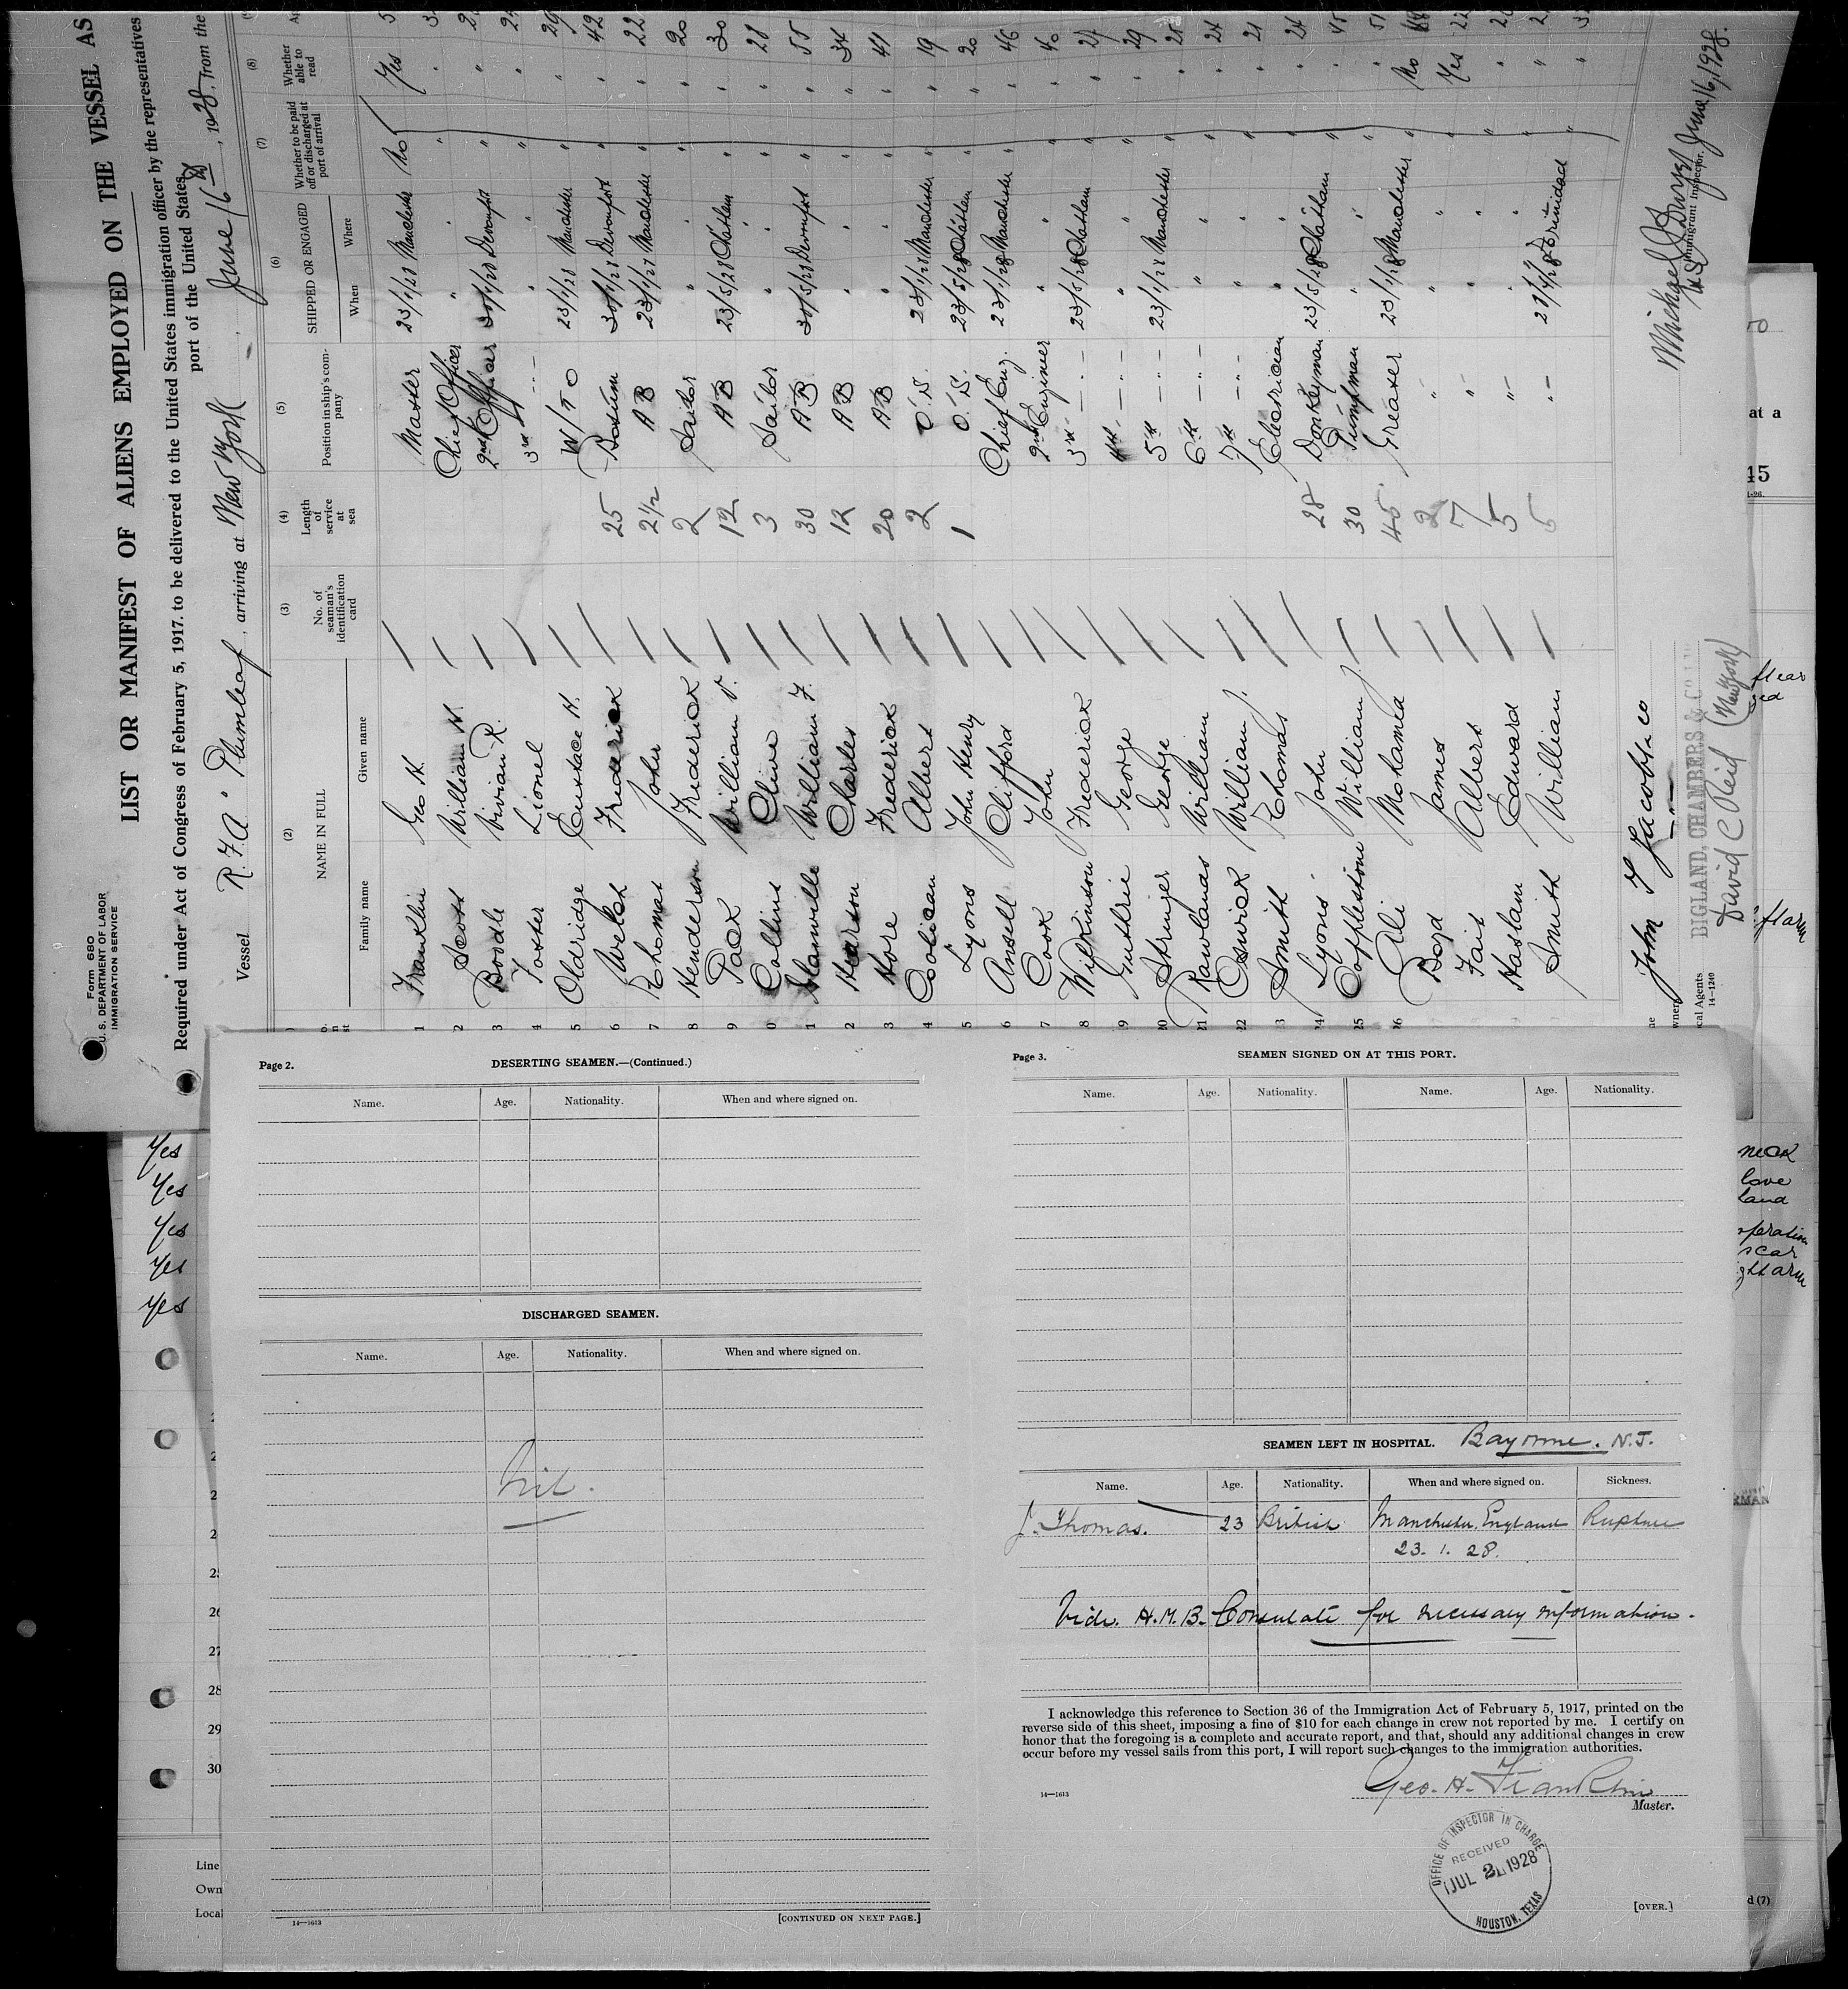 Form 680
U. S. DEPARTMENT OF LABOR
IMMIGRATION SERVICE
LIST OR MANIFEST OF ALIENS EMPLOYED ON THE VESSEL AS
Required under Act of Congress of February 5, 1917, to be delivered to the United States immigration officer by the representatives
port of the United States
Vessel R.F.A. "Plumleaf, arriving at New York June 16th, 1928, from the
(2) (3) (4) (5) (6) (7) (8)
NAME IN FULL No. of seaman's identification card Length of service at sea Position in ship's company SHIPPED OR ENGAGED Whether to be paid off or discharged at port of arrival Whether able to read
Family name Given name When Where
1 Franklin Geo H. Master 23/1/28 Manchester No Yes
2 Scott William N. Chief Officer " "
3 Boodle Vivian R. 2nd Officer 30/1/28 Devonport "
4 Foster Lionel 3rd " " "
5 Oldridge Eustace H. W/TO 23/1/28 Manchester " 29
6 Welch Frederick 25 Bosun 30/1/28 Devonport " 42
7 Thomas John 2½ AB 23/1/28 Manchester " 22
8 Henderson Frederick 2 Sailor " " 20
9 Pack William V. 12 AB 23/5/28 Chatham " 30
0 Collins Clive 3 Sailor " " 28
1 Glanville William F. 30 AB 30/5/28 Devonport " 55
2 Hearson Charles 12 AB " " 34
3 Hore Frederick 20 AB " " 41
4 Colican Albert 2 O.S. 23/1/28 Manchester " 19
5 Lyons John Henry 1 O.S. 23/5/28 Chatham " 20
6 Ansell Clifford Chief Eng. 23/1/28 Manchester " 46
7 Cook John 2nd Enginer " " 40
8 Wilkinson Frederick 3rd " 23/5/28 Chatham " 27
9 Guthrie George 4th " " " 29
20 Stringer George 5th " 23/1/28 Manchester " 25
21 Rawlings William 6th " " " 24
22 Oswick William J. 7th " " " 21
3 Smith Thomas Electrician " " 24
24 Lyons John 28 Donkeyman 23/5/28 Chatham " 45
25 Copplestone William J. 30 Pumpman " " 51
26 Ali Mohamed 45 Greaser 23/1/28 Manchester " No
Boyd James 2 " " " Yes 22
Tait Albert 7 " " "
Haslam Edward 5 " " "
Smith William 5 " Trinidad "
John T Jacobs & Co
DIGLAND, CHAMBERS & CO
David C Reid (New York)
cal Agents
14-1240
Michael J Dwyer
U.S. Immigrant Inspector.
June 16, 1928.
at a
45
flear
flarm
Yes
Yes
Yes
Yes
Yes
neck
love
land
operation
scar
ght arm
RMAN
26
27
28
29
30
Line
Own
Local
d (7)
Page 2. DESERTING SEAMEN.—(Continued.)
Name. Age. Nationality. When and where signed on.
DISCHARGED SEAMEN.
Name. Age. Nationality. When and where signed on.
Nil.
14—1613
[CONTINUED ON NEXT PAGE.]
Page 3. SEAMEN SIGNED ON AT THIS PORT.
Name. Age. Nationality. Name. Age. Nationality.
SEAMEN LEFT IN HOSPITAL. Bayonne. N.J.
Name. Age. Nationality. When and where signed on. Sickness.
J. Thomas. 23 British Manchester, England Rupture
23. 1. 28.
Vide. H.M.B. Consulate for necessary information.
I acknowledge this reference to Section 36 of the Immigration Act of February 5, 1917, printed on the
reverse side of this sheet, imposing a fine of $10 for each change in crew not reported by me. I certify on
honor that the foregoing is a complete and accurate report, and that, should any additional changes in crew
occur before my vessel sails from this port, I will report such changes to the immigration authorities.
Geo. H. Franklin
14—1613
Master.
OFFICE OF INSPECTOR IN CHARGE
RECEIVED
JUL 2 1928
HOUSTON, TEXAS
[OVER.]